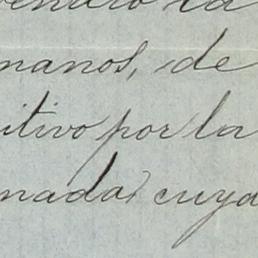 la
manos, de
itivo por la
nada cuya